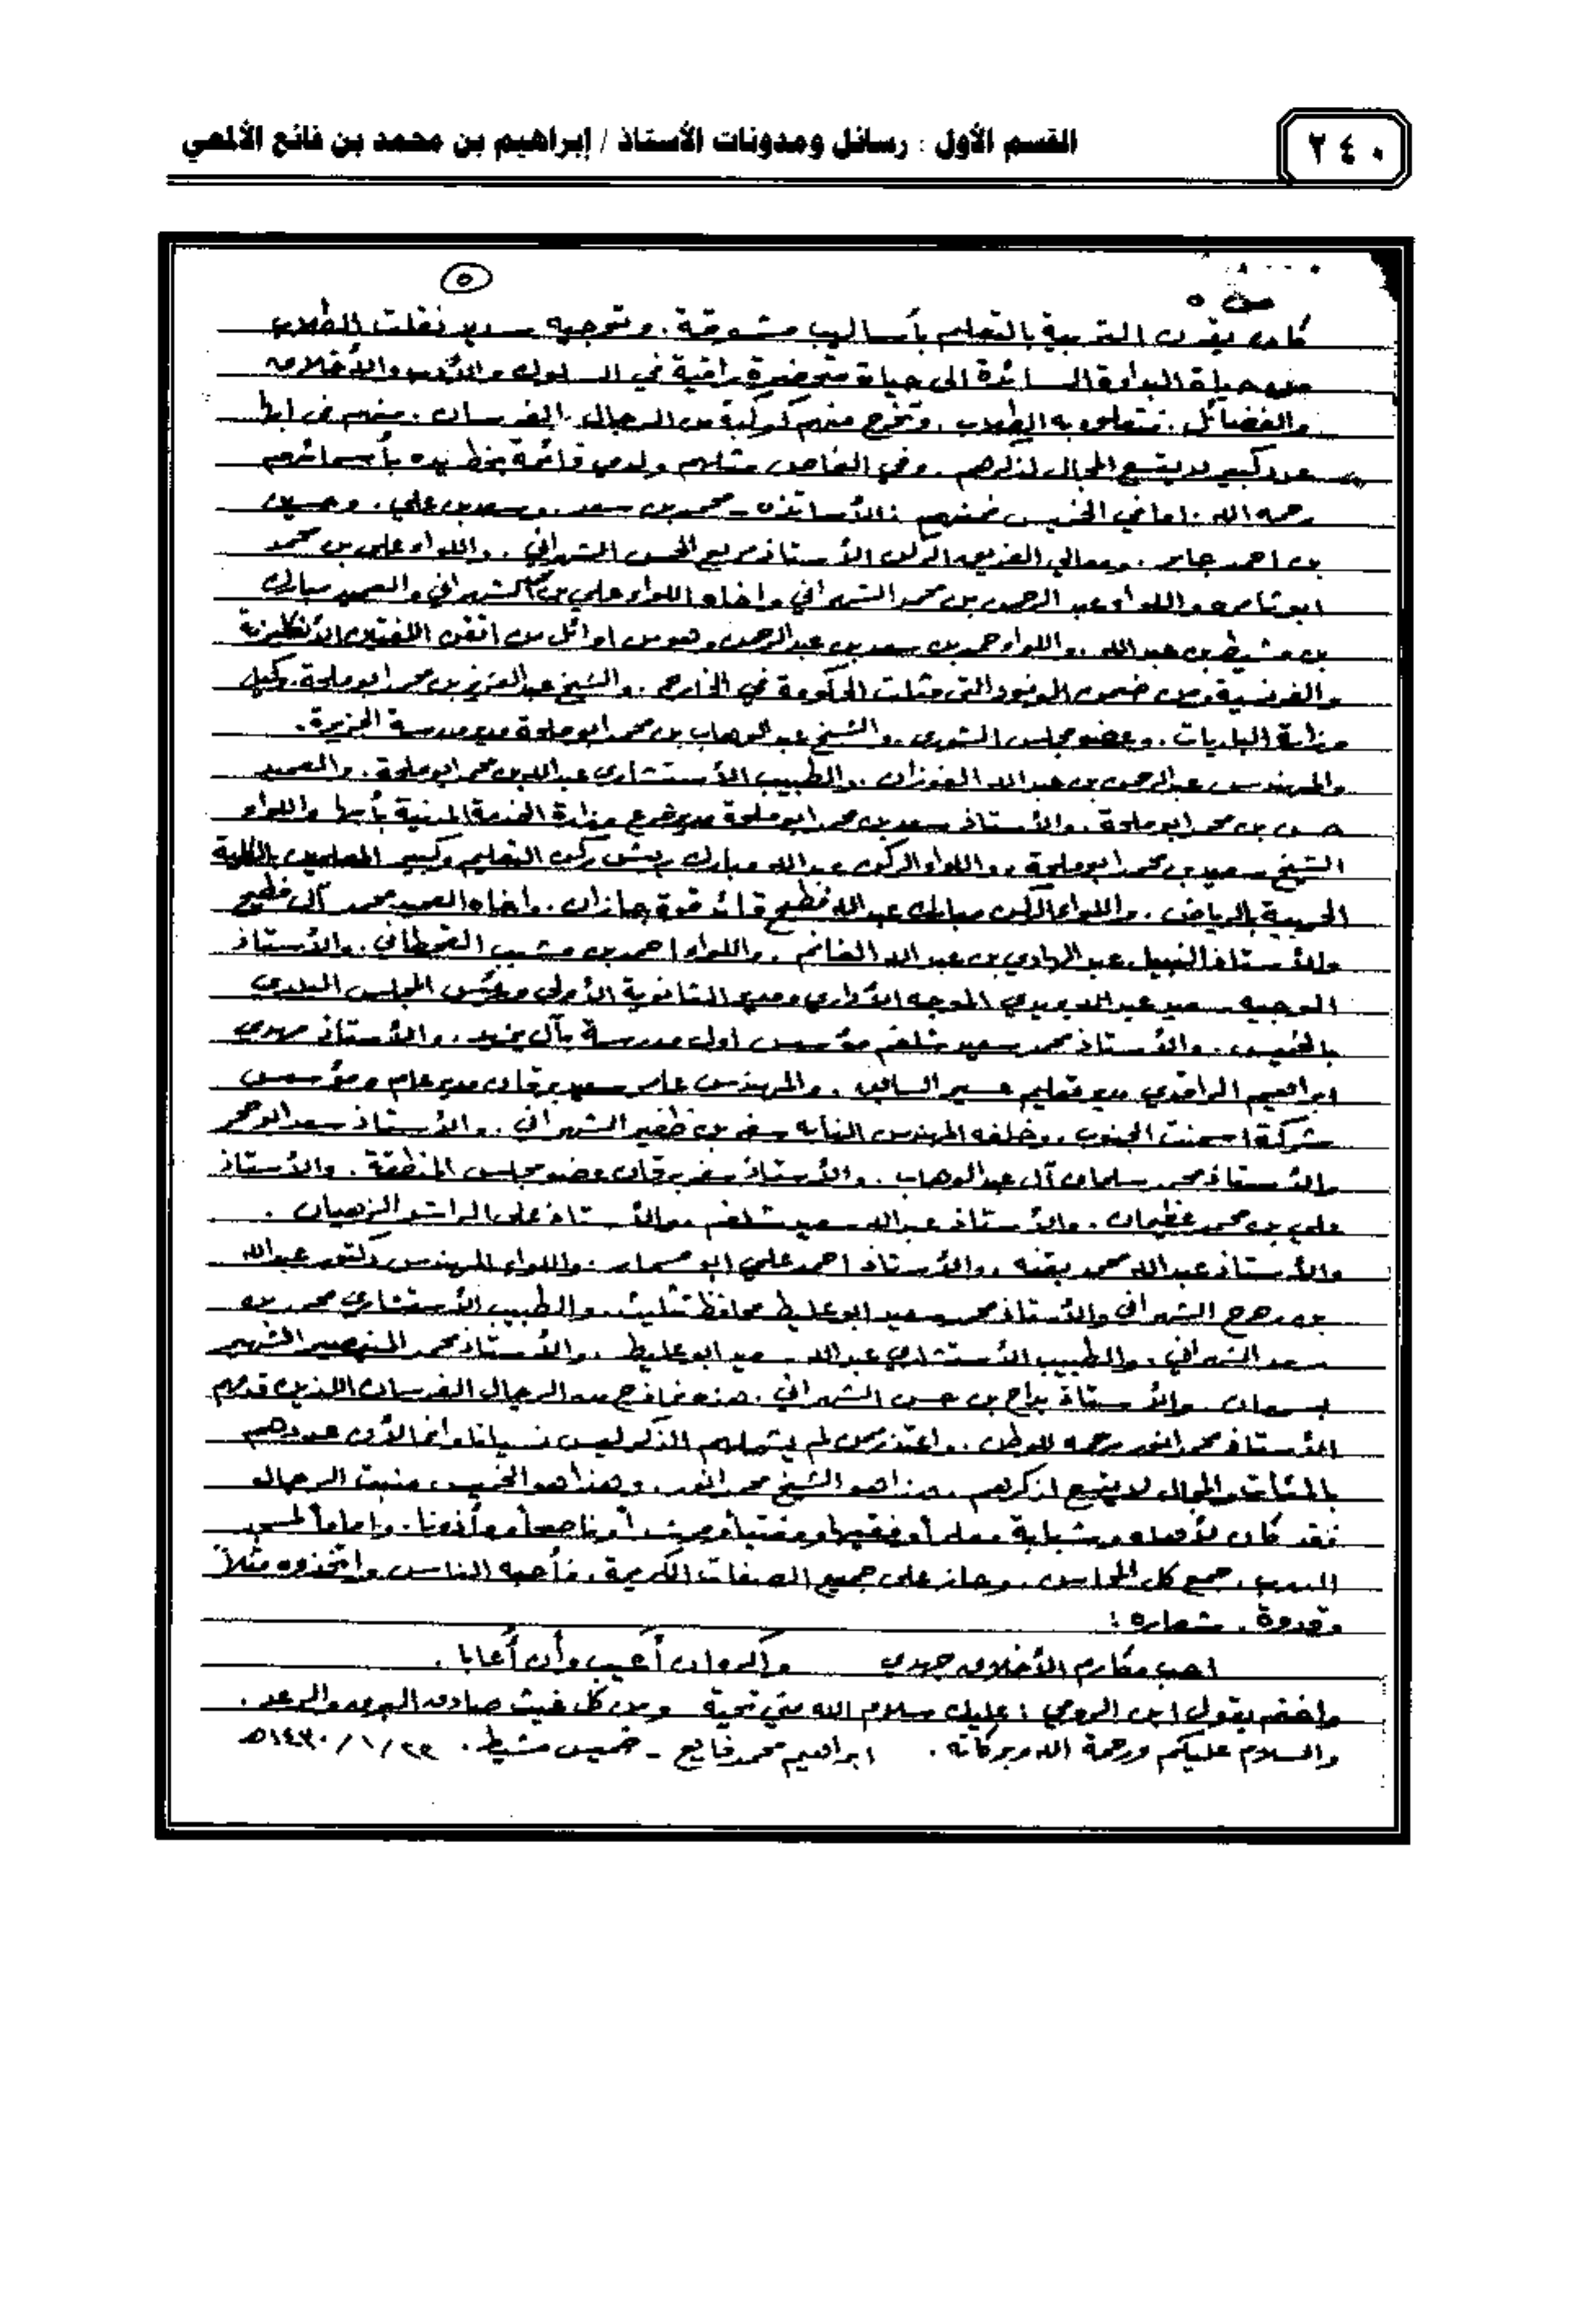 ٢٤٠
القسم الأول : رسائل ومدونات الأستاذ / إبراهيم بن محمد بن فائع الألمعي
٥
ص ٥
كان يقرن التربية بالتعليم بأساليب مشوقة . وتوجيه سديد نقلت الطلاب
من حياة البداوة السائدة الى حياة متحضرة راقية في السلوك والأدب والأخلاق
والفضائل . فتعلق به الطلاب . وتخرج منهم كوكبة من الرجال الفرسان . منهم في ابها
عدد كبير لا يتسع المجال لذكرهم . وفي الخاص مثلهم ولدي قائمة بخط يده بأسمائهم
رحمه الله . اما في الخميس فمنهم : الأساتذة - محمد بن سعد . وسعد بن علي . وحسين
بن احمد جابر . ومعالي الفريق الركن الأستاذ مريع الحسن الشهراني . واللواء علي بن محمد
ابو ثامره واللواء عبد الرحمن بن محمد الشهراني واخاه اللواء علي بن محمد الشهراني والعميد مبارك
بن مشيط بن عبد الله . واللواء حمد بن سعد بن عبد الرحمن وهو من اوائل من اتقن اللغتين الأنكليزية
والفرنسية ومن ضمن الوفود التي مثلت الحكومة في الخارج . والشيخ عبد العزيز بن محمد ابو ملحة . وكيل
وزارة الماليات . وعضو مجلس الشورى . والشيخ عبد الوهاب بن محمد ابو ملحة مدير مدرسة الجزيرة .
والمهندس عبد الرحمن بن عبد الله الفوزان . والطبيب الأستشاري عبد الله بن محمد ابو ملحة . والعميد
حسن بن محمد ابو ملحة . والأستاذ سعد بن محمد ابو ملحة مدير فرع وزارة الخدمة المدنية بأبها واللواء
الشيخ سعيد بن محمد ابو ملحة . واللواء الركن عبد الله مبارك رئيس ركن التعليم وكبير المعلمين بالكلية
الحربية بالرياض . واللواء الركن مبارك عبد الله فطيح قائد قوة جازان . واخاه العميد محمد آل فطيح
والأستاذ النبيل عبد الهادي بن عبد الله الغانم . واللواء احمد بن مشبب القحطاني . والأستاذ
الوجيه سعيد عبد الله بريدي الموجه الأداري ومدير الثانوية الأولى وعضو المجلس البلدي
بالخميس . والأستاذ محمد سعيد شلغم مؤسس اول مدرسة بآل يزيد . والأستاذ مهدي
ابراهيم الراقدي مدير تعليم عسير السابق . والمهندس عامر سعيد برقان مدير عام ومؤسس
شركة اسمنت الجنوب . وخلفه المهندس النابه سفر بن ظفير الشهراني . والأستاذ سعد ابو محمر
والأستاذ محمد سلمان آل عبد الوهاب . والأستاذ سفر برقان عضو مجلس المنطقة . والأستاذ
علي بن محمد عظيمان . والأستاذ عبد الله سعيد شلغم والأستاذ علي الراشد الزهيان .
والأستاذ عبد الله محمد يقنه . والأستاذ احمد علي ابو مسمار . واللواء المهندس دكتور عبد الله
بن هرج الشهراني والأستاذ محمد سعيد ابو عليط محافظ تثليث . والطبيب الأستشاري محمد بن
سعد الشهراني . والطبيب الأستشاري عبد الله سعيد ابو عليط . والأستاذ محمد الشهير
والأستاذ براح بن حسن الشهراني . هذه نماذج من الرجال الفرسان الذين قدمهم
الأستاذ محمد انور رحمه للوطن . واعتذر ممن لم يشملهم الذكر ليس نسيانا وانما لأن عددهم
بالمئات والمجال لا يتسع لذكرهم . هذا هو الشيخ محمد انور . وهذا هو الخميس منبت الرجال
فقد كان لأهله وشبابه معلما وفقيها ومفتيا ومرشدا وناصحا ومأذونا . واماما لمسجد
الدرب . جمع كل المحاسن . وحاز على جميع الصفات الكريمة . فأحبه الناس واتخذوه مثلاً
وقدوة . شعاره :
احب مكارم الأخلاق جهدي     واكره ان أعيب وأن أعابا .
واختم بقول ابن الرومي : عليك سلام الله مني تحية   ومن كل غيث صادق البرق والرعد .
والسلام عليكم ورحمة الله وبركاته .   ابراهيم محمد فايع - خميس مشيط . ٢٢ / ١ / ١٤٣٠هـ